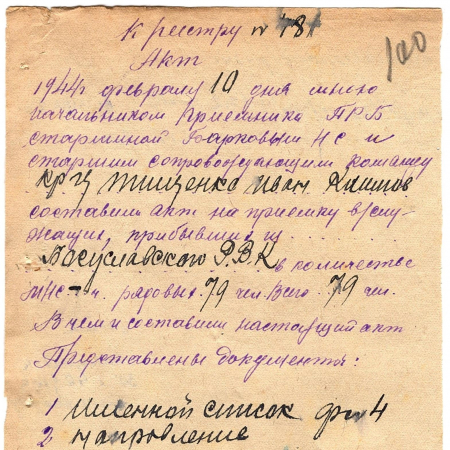 К реестру № 78
100
Акт
1944г февралу 10 дня мною
начальником приемника ПРБ
старшиной Барковым НС и
старшим сопровождающим команду
кр-ц Тищенко Иван Климов
составили акт на приемку в/слу-
жащих, прибывших из
Богуславского РВК в количестве
МНС - ч. рядовых 79 чел. Всего 79 чел.
В чем и составили настоящий акт
Представлены документы:
1 именной список ф№ 4
2 направление